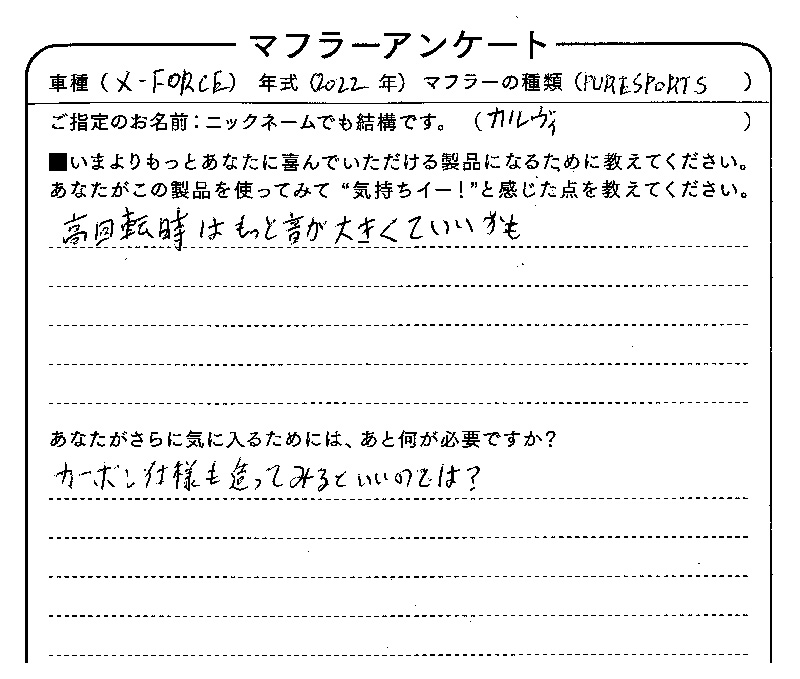 マフラーアンケート
車種（X-FORCE）年式（2022年）マフラーの種類（PURESPORTS）
ご指定のお名前：ニックネームでも結構です。（カルヴィ）
■いまよりもっとあなたに喜んでいただける製品になるために教えてください。
あなたがこの製品を使ってみて“気持ちイー！”と感じた点を教えてください。
高回転時はもっと音が大きくていいかも
あなたがさらに気に入るためには、あと何が必要ですか？
カーボン仕様も造ってみるといいのでは？